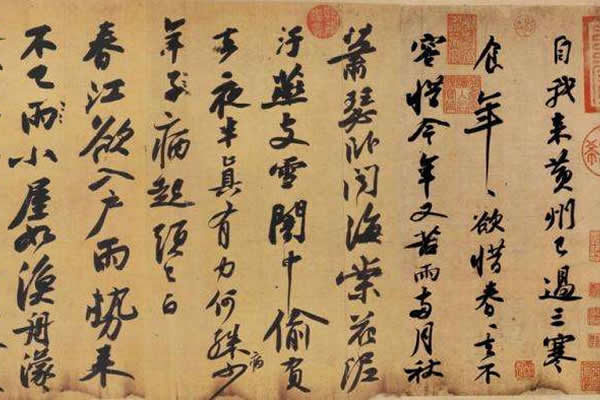 自我來黃州已過三寒
食年〻欲惜春〻去不
容惜今年又苦雨兩月秋
蕭瑟臥聞海棠花泥
汙燕支雪闇中偷負
去夜半真有力何殊少病
年子病起頭已白
春江欲入戶雨勢來
不已雨小屋如漁舟濛